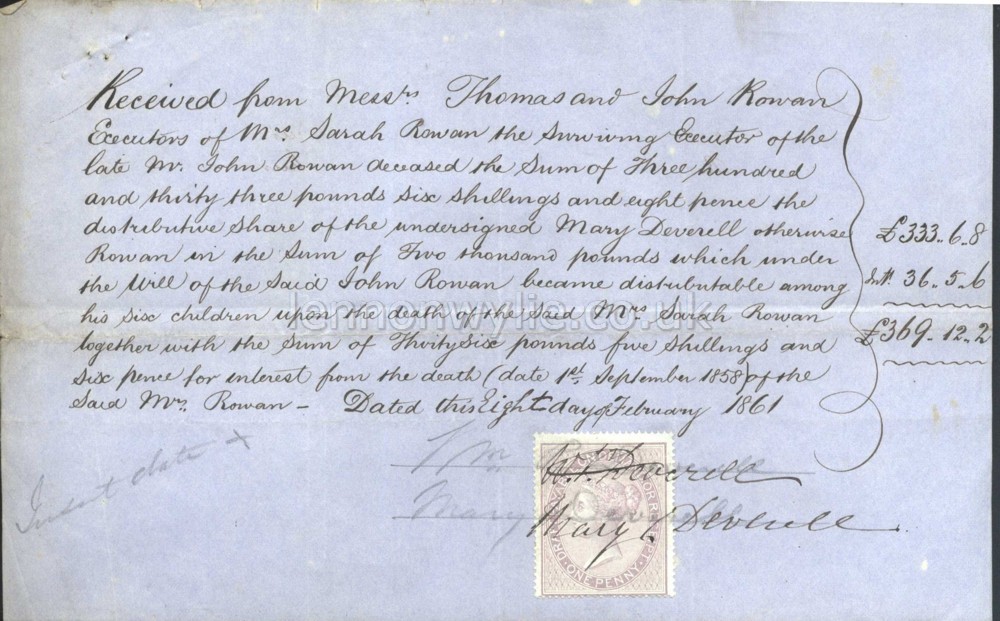 Received from Messrs Thomas and John Rowan
Executors of Mrs Sarah Rowan the Surviving Executor of the
late Mr. John Rowan deceased the Sum of Three hundred
and thirty three pounds six shillings and eight pence the
distributive Share of the undersigned Mary Deverell otherwise
Rowan in the Sum of Two thousand pounds which under
the Will of the Said John Rowan became distributable among
his six children upon the death of the Said Mrs Sarah Rowan
together with the Sum of Thirty Six pounds five Shillings and
six pence for interest from the death (date 1st. September 1858) of the
Said Mrs. Rowan - Dated this Eight day of February 1861
£333..6..8
Int. 36..5..6
£369..12..2
lennonwylie.co.uk
Insert date x
Deverell
Mary Deverell
ONE PENNY